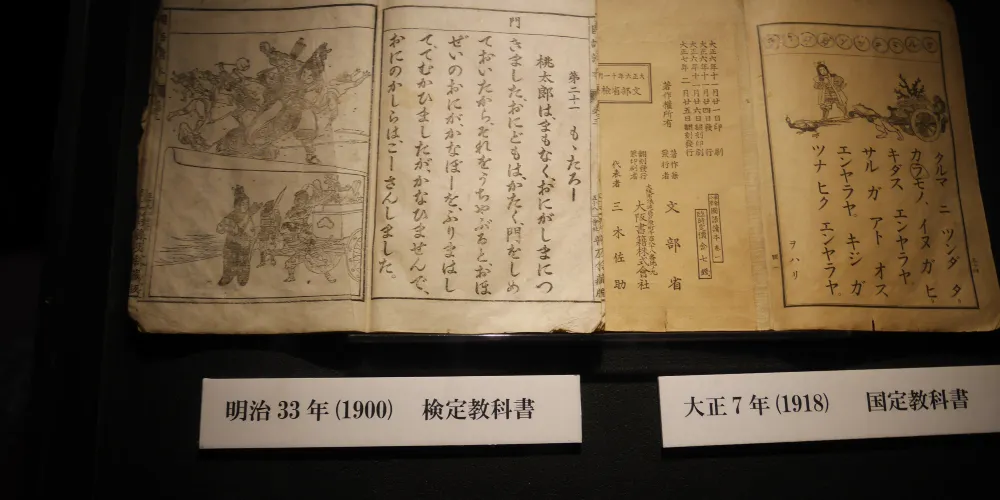 門
第二十一 もゝたろー
桃太郎は、まもなく、おにがしまにつ
きました。おにどもは、かたく、門をしめ
ておいたから、それをうちやぶると、おほ
ぜいのおにが、かなぼーを、ふりまはし
て、てむかひましたが、かなひませんで、
おにのかしらは、こーさんしました。
大正六年十一月廿一日印刷
大正六年十一月廿四日發行
大正六年十二月廿六日飜刻印刷
大正七年二月廿五日飜刻發行
著作權所有
文部省檢
著作兼
發行者
文部省
飜刻發行
兼印刷者
大阪書籍株式會社
代表者 三木佐助
クルマ ニ ツンダ タ、
カラモノ、イヌ ガ ヒ、
キダス エンヤラヤ。
サル ガ アト オス
エンヤラヤ。 キジ ガ
ツナ ヒク エンヤラヤ。
ヲハリ
明治 33 年 (1900) 検定教科書
大正 7 年 (1918) 国定教科書